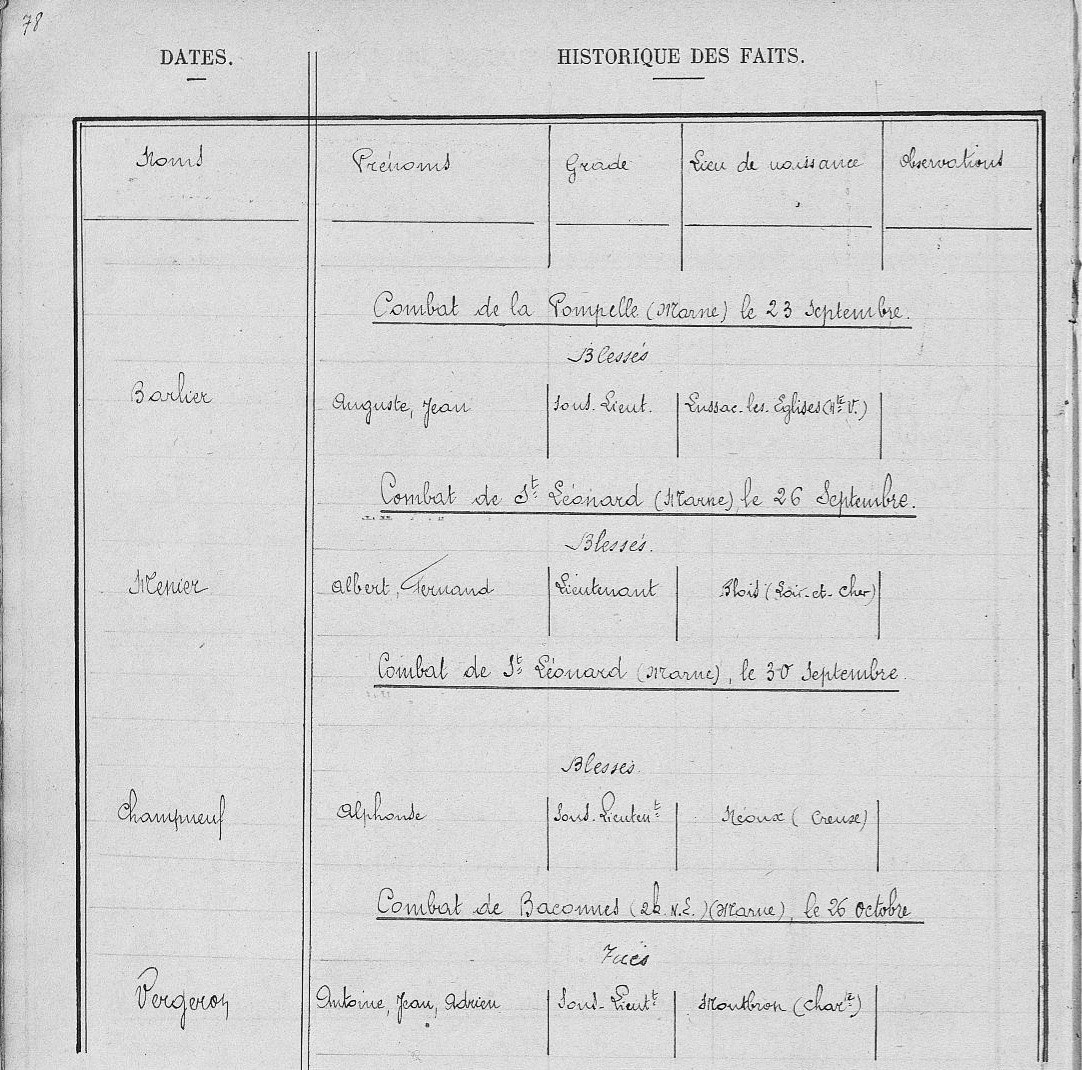 78
DATES. HISTORIQUE DES FAITS.
Noms Prénoms Grade Lieu de naissance Observations
Combat de la Pompelle (Marne) le 23 Septembre.
Blessés
Barlier Auguste, Jean Sous-Lieut. Lussac-les-Eglises (Hte V.)
Combat de St Léonard (Marne), le 26 Septembre.
Blessés.
Menier Albert, Fernand Lieutenant Blois (Loir-et-Cher)
Combat de St Léonard (Marne), le 30 Septembre.
Blessés.
Champneuf Alphonse Sous-Lieutent Néoux (Creuse)
Combat de Baconnes (2k. N.E.) (Marne), le 26 Octobre
Tués
Vergeron Antoine, Jean, Adrien Sous-Lieutt Montbron (Charte)